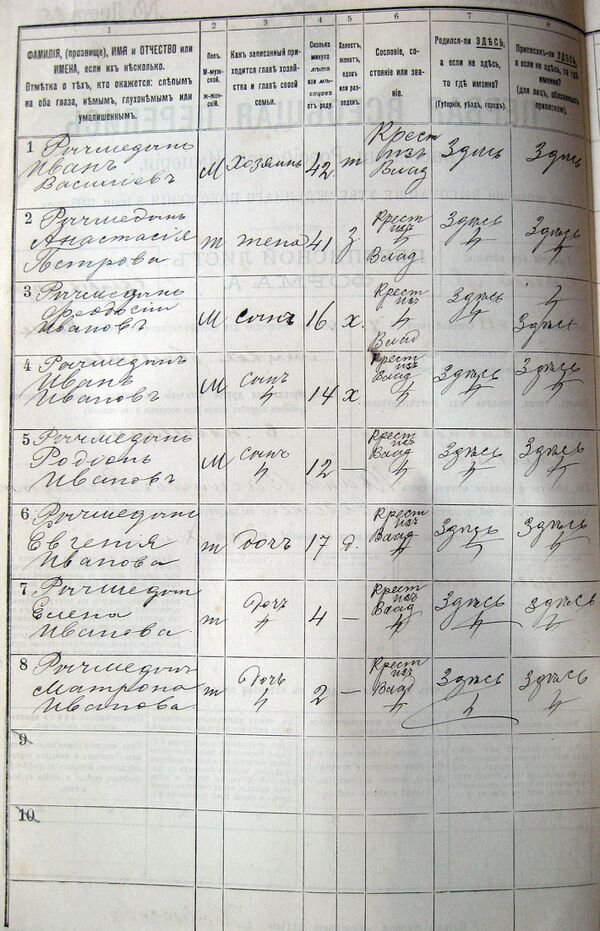 1 2 3 4 5 6 7 8
ФАМИЛІЯ, (прозвище), ИМЯ и ОТЧЕСТВО или
ИМЕНА, если ихъ нѣсколько.
Отмѣтка о тѣхъ, кто окажется: слѣпымъ
на оба глаза, нѣмымъ, глухонѣмымъ или
умалишеннымъ.
Полъ.
М-мужской.
ж-женскій.
Какъ записанный приходится главѣ хозяйства и главѣ своей
семьи.
Сколько
минуло
лѣтъ
или мѣсяцевъ
отъ роду.
Холостъ,
женатъ,
вдовъ
или разведенъ.
Сословіе, состояніе или званіе.
Родился-ли ЗДѢСЬ,
а если не здѣсь,
то гдѣ именно?
(Губернія, уѣздъ, городъ).
Приписанъ-ли ЗДѢСЬ,
а если не здѣсь, то гдѣ
именно?
(для лицъ, обязанныхъ
припискою).
1
Иванъ
Васильевъ
М Хозяинъ 42 ж
Крест
изъ
Влад
Здѣсь Здѣсь
2
Анастасія
Петрова
ж жена 41 з
Крест
изъ
Влад
Здѣсь Здѣсь
3
Ивановъ
М сынъ 16 х.
Крест
изъ
Влад
Здѣсь Здѣсь
4
Иванъ
Ивановъ
М сынъ 14 х.
Крест
изъ
Влад
Здѣсь Здѣсь
5
Родіонъ
Ивановъ
М сынъ 12 —
Крест
изъ
Влад
Здѣсь Здѣсь
6
Евгенія
Иванова
ж дочь 17 д.
Крест
изъ
Влад
Здѣсь Здѣсь
7
Елена
Иванова
ж дочь 4 —
Крест
изъ
Влад
Здѣсь Здѣсь
8
Матрона
Иванова
ж дочь 2 —
Крест
изъ
Влад
Здѣсь Здѣсь
9
10